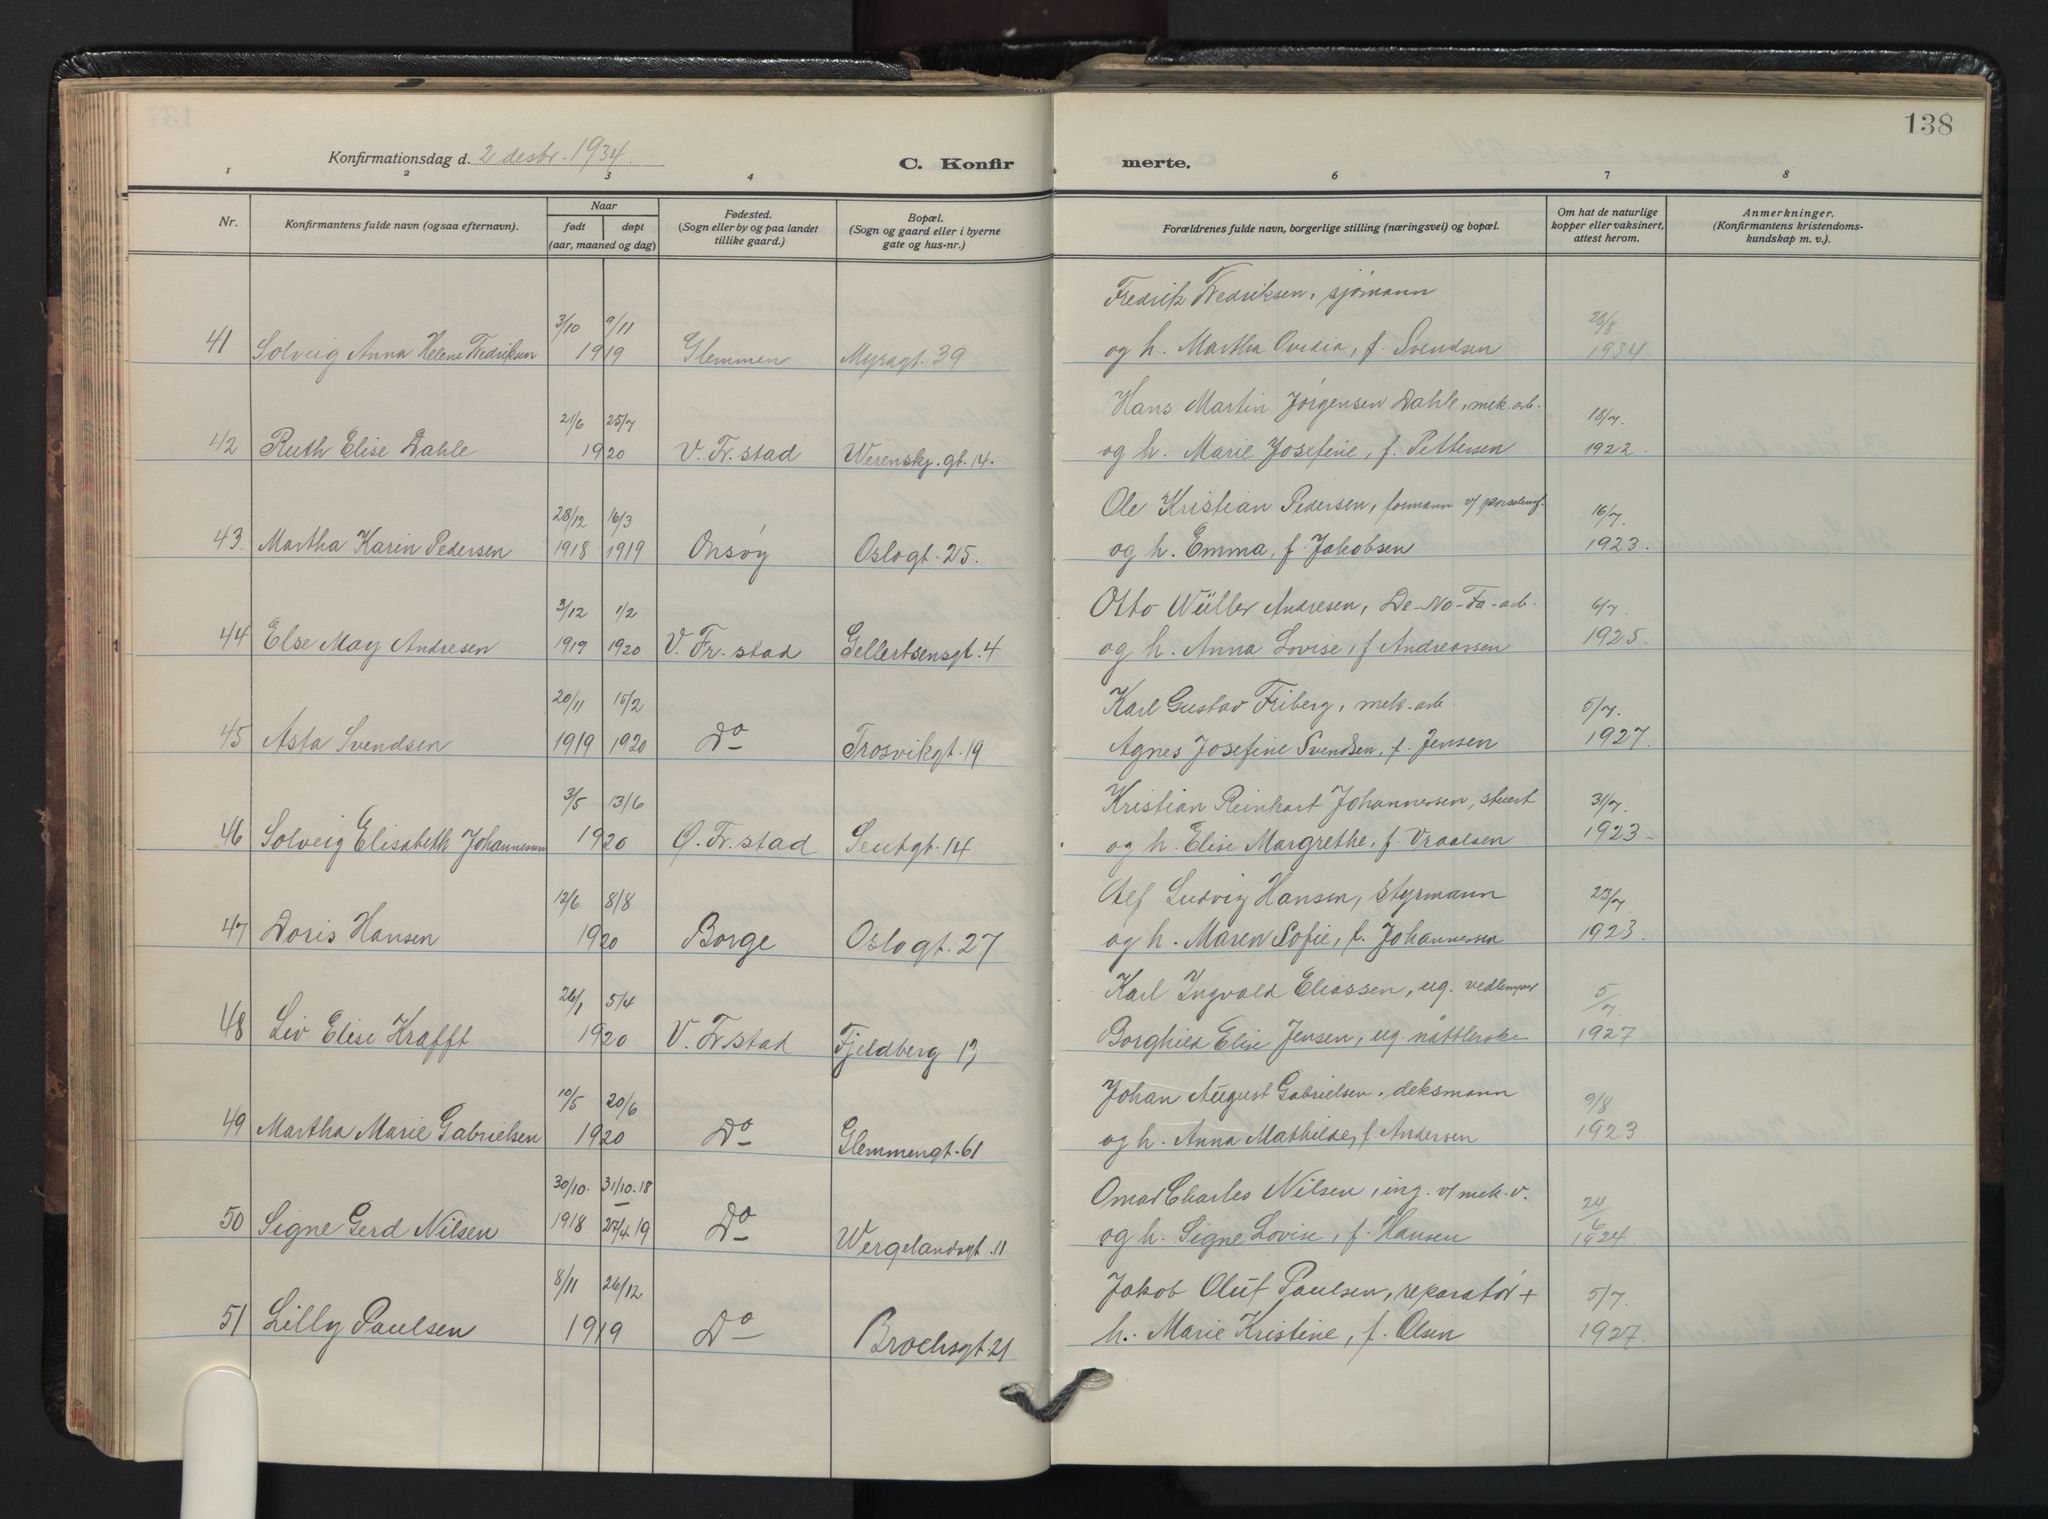 138
Konfirmationsdag d. 2 desbr. 1934.
C. Konfirmerte.
1 2 3 4 6 7 8
Nr.
Konfirmantens fulde navn (ogsaa efternavn).
Naar
født døpt
(aar, maaned og dag)
Fødested.
(Sogn eller by og paa landet
tillike gaard.)
Bopæl.
(Sogn og gaard eller i byerne
gate og hus-nr.)
Forældrenes fulde navn, borgerlige stilling (næringsvei) og bopæl.
Om hat de naturlige
kopper eller vaksinert,
attest herom.
Anmerkninger.
(Konfirmantens kristendoms-
kundskap m. v.).
3/10 9/11 Fredrik Fredriksen, sjømann 28/8.
41 Solveig Anna Helene Fredriksen 1919 Glemmen Myragt. 39 og h. Martha Ovidia, f. Svendsen 1934
21/6 25/7 Hans Martin Jørgensen Dahle, mek. arb. 18/7.
42 Ruth Elise Dahle 1920 V. Fr. stad Werenskj. gt. 14. og h. Marie Josefine, f. Pettersen 1922.
28/12 16/3 Ole Kristian Pedersen, formann v/ 16/7.
43. Martha Karin Pedersen 1918 1919 Onsøy Oslogt. 25. og h. Emma, f. Jakobsen 1923.
3/12 1/2 Otto Wüller Andresen, De-No-Fa-arb. 6/7.
44 Else May Andresen 1919 1920 V. Fr. stad Gellertsensgt. 4 og h. Anna Lovise, f Andreassen 1925.
20/11 15/2 Karl Gustav Friberg, mek. arb. 5/7.
45 Asta Svendsen 1919 1920 Do Trosvikgt. 19 Agnes Josefine Svendsen, f. Jensen 1927.
3/5 13/6 Kristian Reinhart Johannessen, stuert 31/7.
46 Solveig Elisabeth Johannessen 1920 Ø. Fr. stad Seutgt. 14 og h. Elise Margrethe, f. Vraalsen 1923 -
12/6 8/8 Alf Ludvig Hansen, styrmann 23/7.
47 Doris Hansen 1920 Borge Oslogt. 27 og h. Maren Sofie, f. Johannessen 1923.
26/1 5/4 Karl Ingvald Eliassen, ug. 5/7.
48 Liv Elise Krafft 1920 V. Fr. stad Fjeldberg 17 Borghild Elise Jensen, ug. 1927
10/5 20/6 Johan August Gabrielsen, deksmann 9/8
49 Martha Marie Gabrielsen 1920 Do Glemmengt. 61 og h. Anna Mathilde, f. Andersen 1923
30/10. 31/10. 18 Omar Charles Nilsen, ing. v/ mek. v. 24/6
50 Signe Gerd Nilsen 1918 27/4 19 Do Wergelandsgt. 11 og h. Signe Lovise, f. Hansen 1924
8/11 26/12 Jakob Oluf Paulsen, reparatør + 5/7.
51 Lilly Paulsen 1919 Do Brochsgt. 21 h. Marie Kristine, f. Olsen 1927.